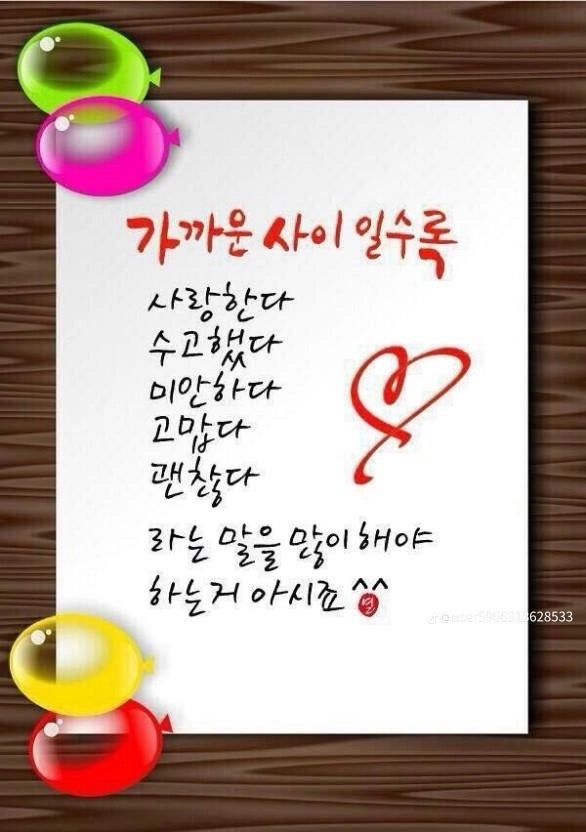 가까운 사이 일수록
사랑한다
수고했다
미안하다
고맙다
괜찮다
라는 말을 많이 해야
하는거 아시죠 ^^
열
@user5906313628533